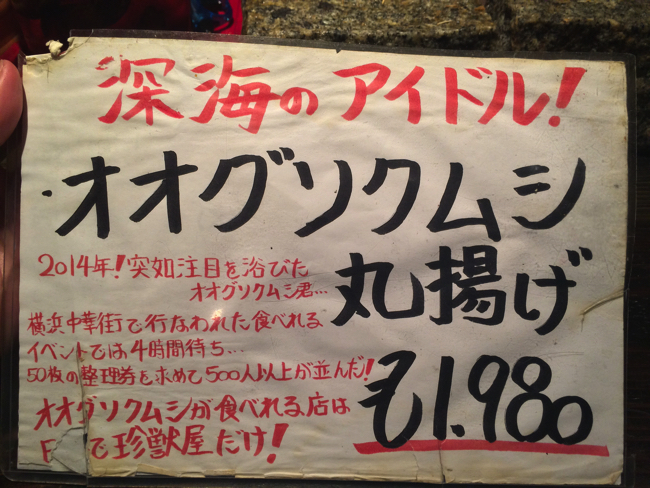 深海のアイドル!
・オオグソクムシ
丸揚げ
2014年!突如注目を浴びた
オオグソクムシ君…
横浜中華街で行なわれた食べれる
イベントでは4時間待ち…
50枚の整理券を求めて500人以上が並んだ!
オオグソクムシが食べれる店は
で珍獣屋だけ!
¥1.980